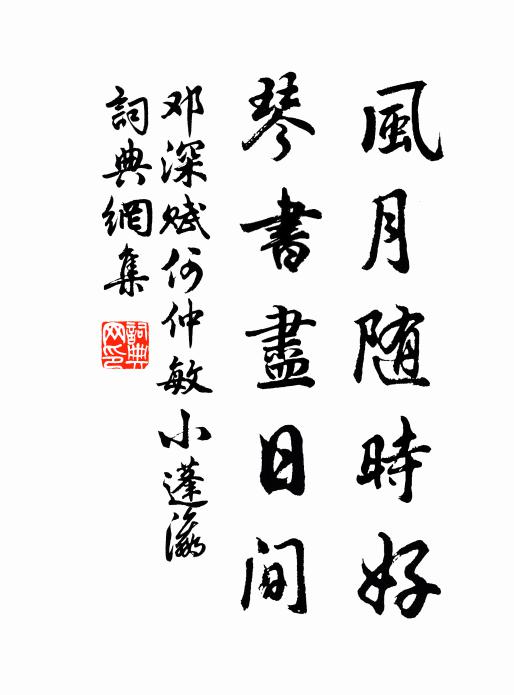 風月随時好
琴書盡日间
邓深赋何仲敏小蓬瀛
詞典網集
詞典网印